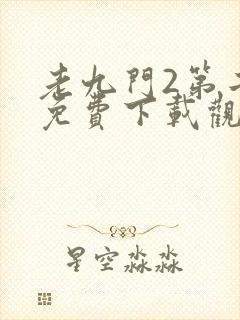 老九門2第
免費下載觀
星空淼淼